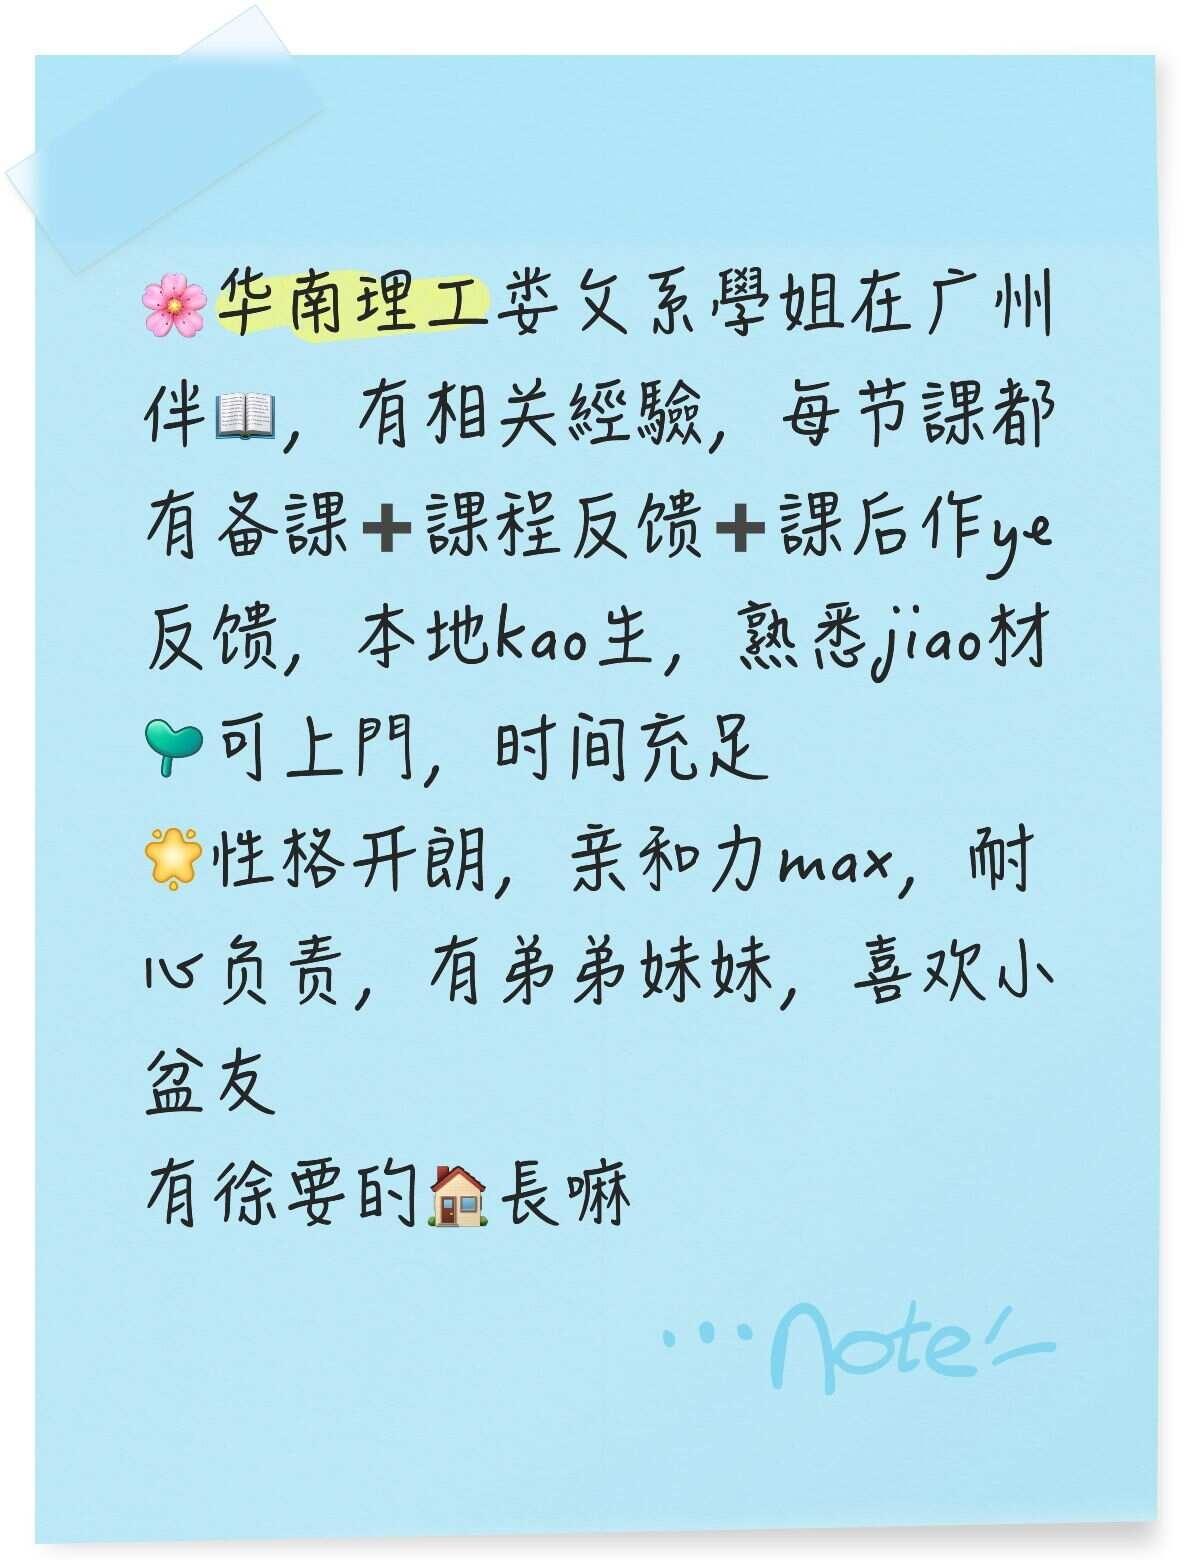 🌸华南理工娄文系學姐在广州
伴📖，有相关經驗，每节課都
有备課➕課程反馈➕課后作ye
反馈，本地kao生，熟悉jiao材
🌱可上門，时间充足
🌟性格开朗，亲和力max，耐
心负责，有弟弟妹妹，喜欢小
盆友
有徐要的🏠長嘛
...note